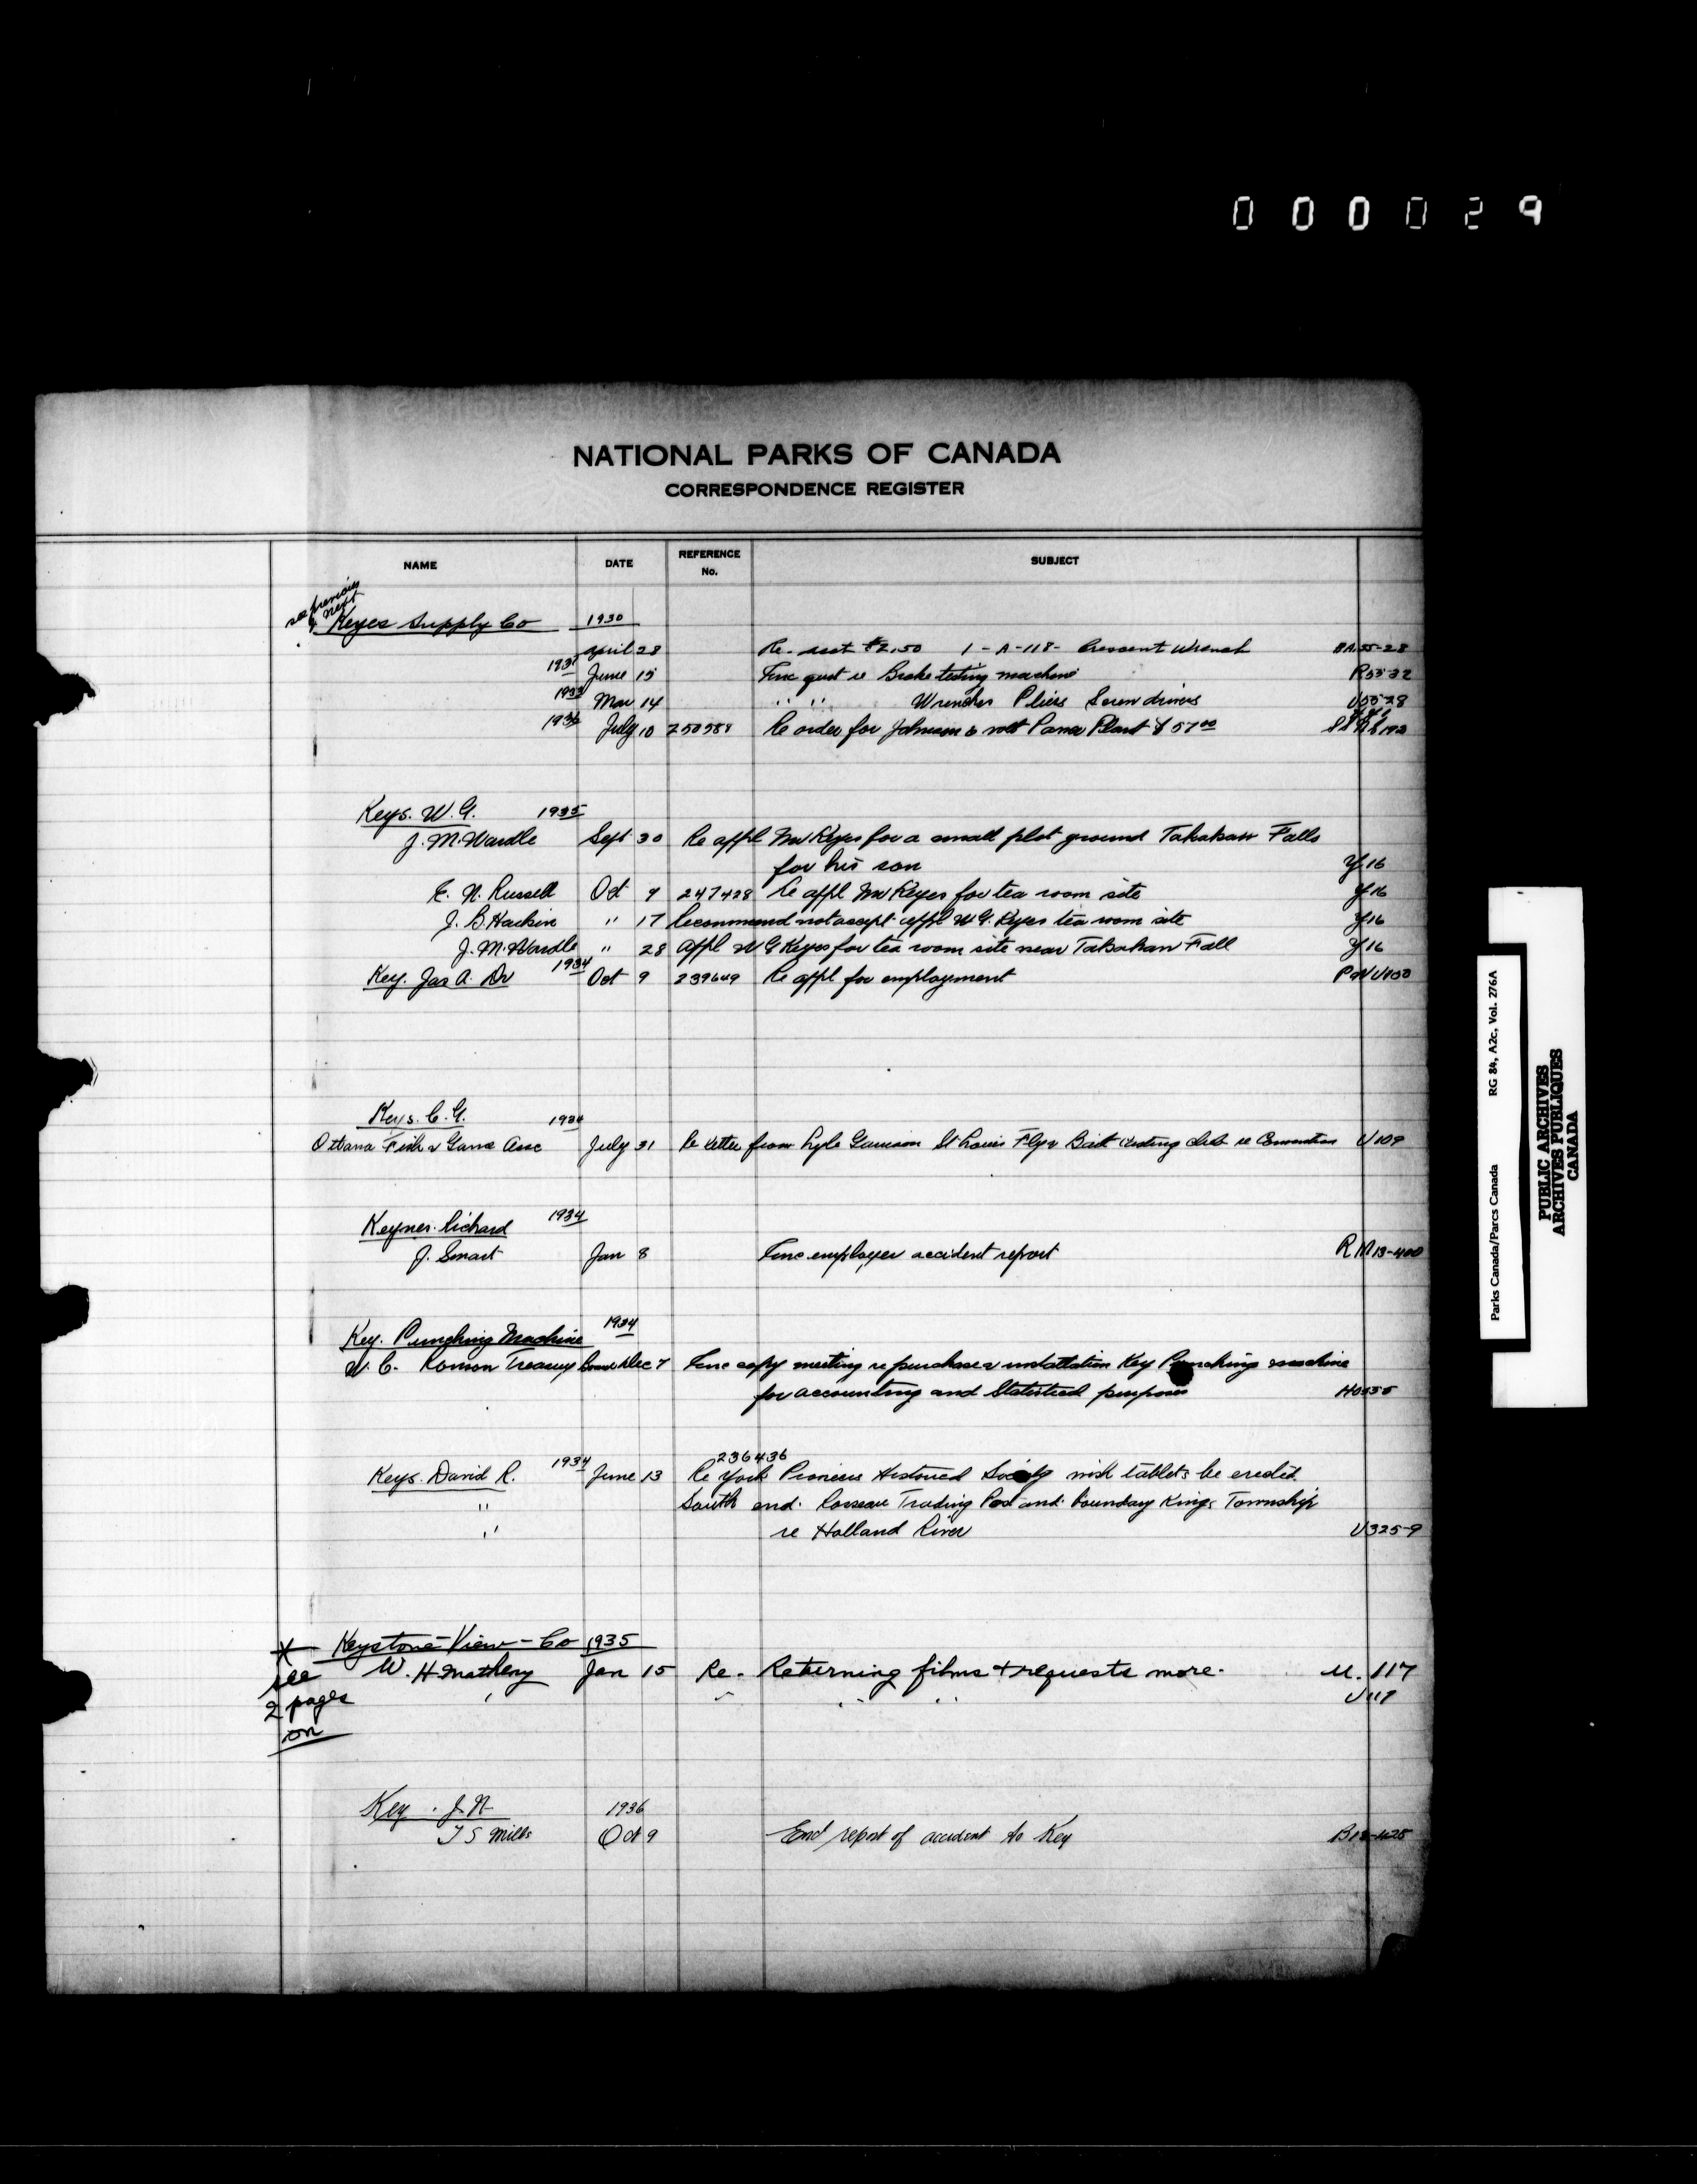 000029
NATIONAL PARKS OF CANADA
CORRESPONDENCE REGISTER
NAME DATE REFERENCE No. SUBJECT
see previous
& next
Keyes Supply Co 1930
April 28 Re- acct #2.50 1-A-118- Crescent Wrench BA55-28
June 15 Enc quot re Brake testing machine R55-32
Mar 14 " " Wrenches Pliers Screw drivers U55-28
1936 July 10 Re order for Johnson 6 volt Power Plant $57.00
Keys. W.G. 1935
J.M. Wardle Sept 30 Re appl Mr Keyes for a small plot ground Takakaw Falls
for his son Y.16
Russell Oct 9 247428 Re appl Mr Keyes for tea room site Y16
J.B Harkin " 17 Recommend not accept appl W.G. Keyes tea room site Y16
J.M. Wardle " 28 Appl W G Keyes for tea room site near Takakaw Fall Y16
Key. Jas A. Dr 1934 Oct 9 239649 Re appl for employment
Keys. C.G. 1934
Ottawa Fish & Game Assc July 31 Re letter from Lyle Garrison St Louis Fly & Bait casting club re Convention U109
Keynes. Richard 1934
J. Smart Jan 8 Enc employee accident report RM13-400
Key. Punching Machine 1934
W.C. Ronson Treasury Board Dec 7 Enc copy meeting re purchase & installation Key Punching machine
for accounting and Statistical purposes
236436
Keys. David R. 1934 June 13 Re York Pioneers Historical Society wish tablets be erected
" South end. Rosseau Trading Post and. boundary King. Township
" re Holland River U325-9
* Keystone View-Co 1935
see W. H Matheny Jan 15 Re. Returning films + requests more. U. 117
2 pages " " " " U117
on
Key. J.N 1936
T S Mills Oct 9 End report of accident to Key
Parks Canada/Parcs Canada RG 84, A2c, Vol. 276A
PUBLIC ARCHIVES
ARCHIVES PUBLIQUES
CANADA